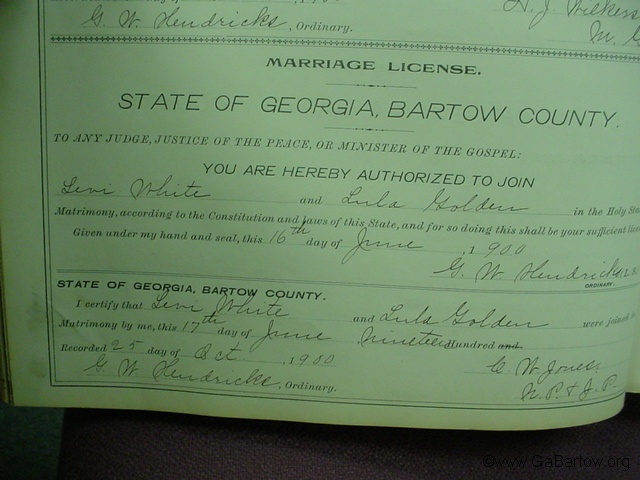 G. W. Hendricks, Ordinary.
MARRIAGE LICENSE.
STATE OF GEORGIA, BARTOW COUNTY.
TO ANY JUDGE, JUSTICE OF THE PEACE, OR MINISTER OF THE GOSPEL:
YOU ARE HEREBY AUTHORIZED TO JOIN
Levi White and Lula Golden in the Holy
Matrimony, according to the Constitution and laws of this State, and for so doing this shall be your sufficient
Given under my hand and seal, this 16th day of June, 1900
G. W. Hendricks
ORDINARY.
STATE OF GEORGIA, BARTOW COUNTY.
I certify that Levi White and Lula Golden were joined
Matrimony by me, this 17th day of June Nineteen Hundred and.
Recorded 25 day of Oct, 1900 C. W. Jones,
G. W. Hendricks, Ordinary. N. P. & J. P.
©www.GaBartow.org